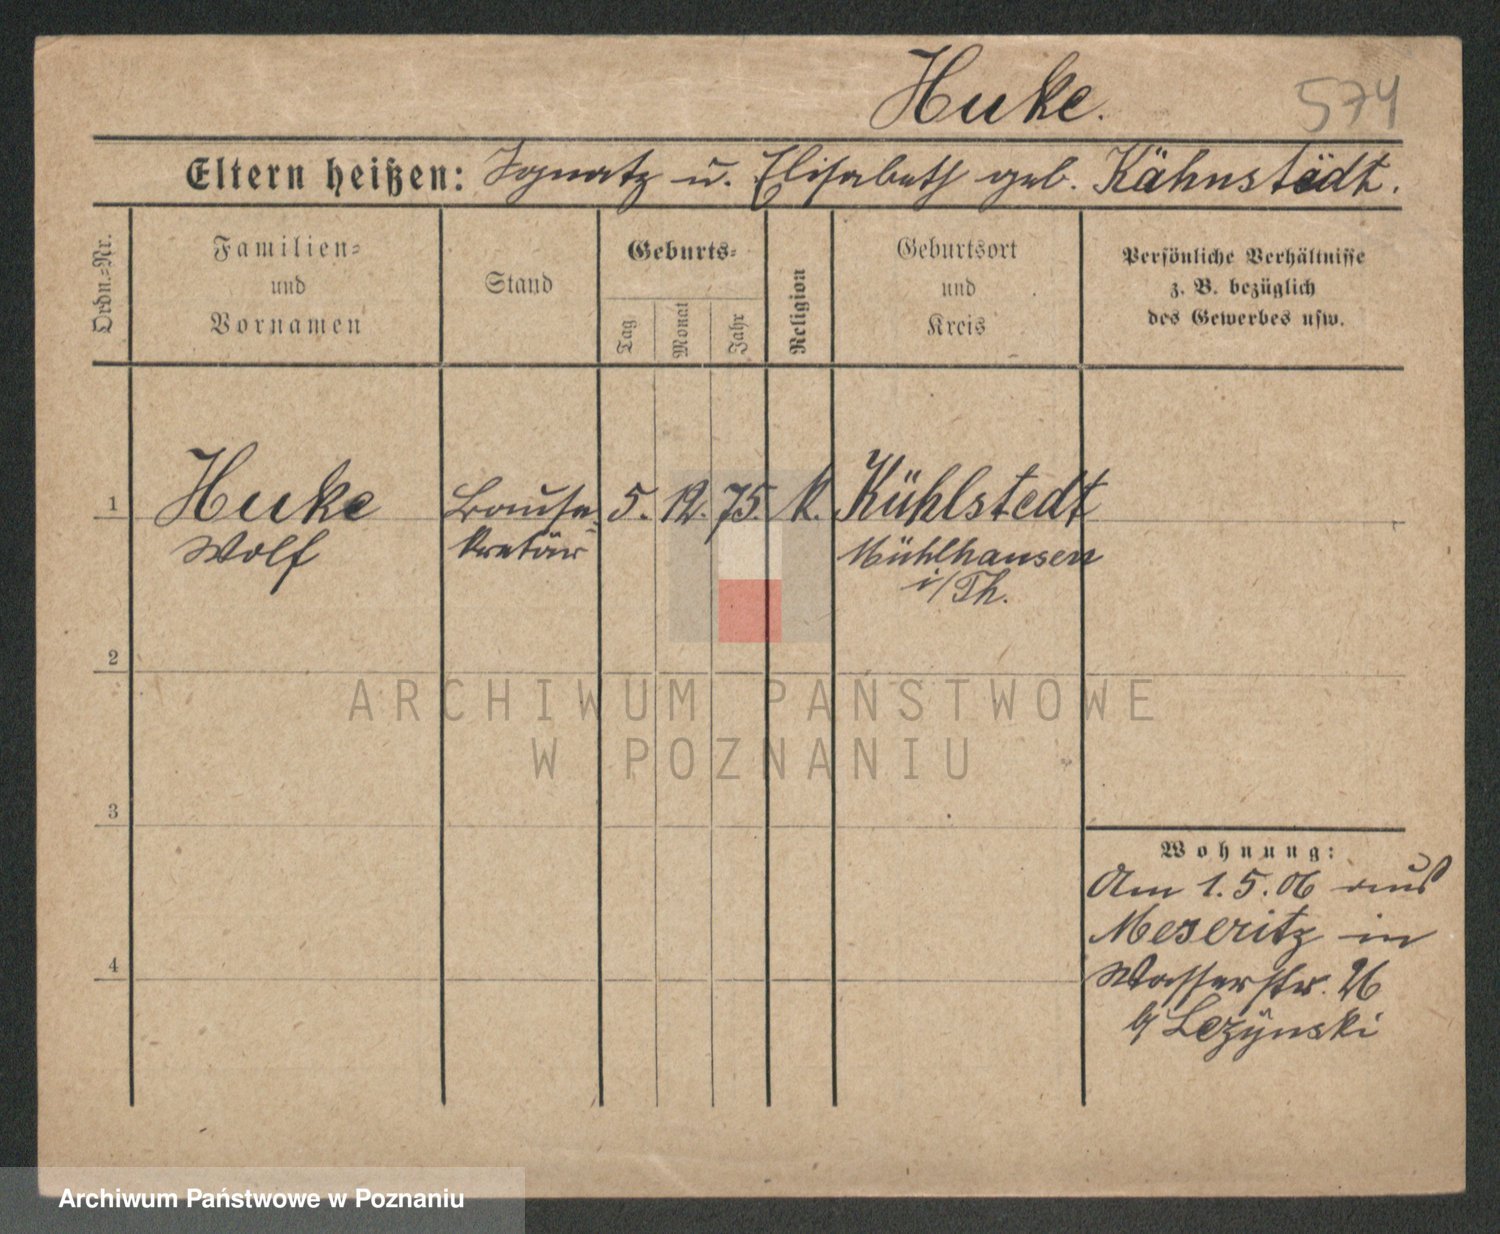 Huke.
574
Eltern heißen: Ignatz u. Elisabeth geb. Kähnstädt.
Ordn.=Nr.
Familien=
und
Vornamen
Stand
Geburts=
Tag
Monat
Jahr
Religion
Geburtsort
und
Kreis
Persönliche Verhältnisse
z. B. bezüglich
des Gewerbes usw.
1 Huke Bause= 5. 12. 75. k. Kühlstedt
Wolf kretär Mühlhausen
i/Th.
2
ARCHIWUM PAŃSTWOWE
W POZNANIU
3
Wohnung:
Am 1.5.06 aus
Meseritz in
4
Wasserstr. 26
b/ Lezynski
Archiwum Państwowe w Poznaniu